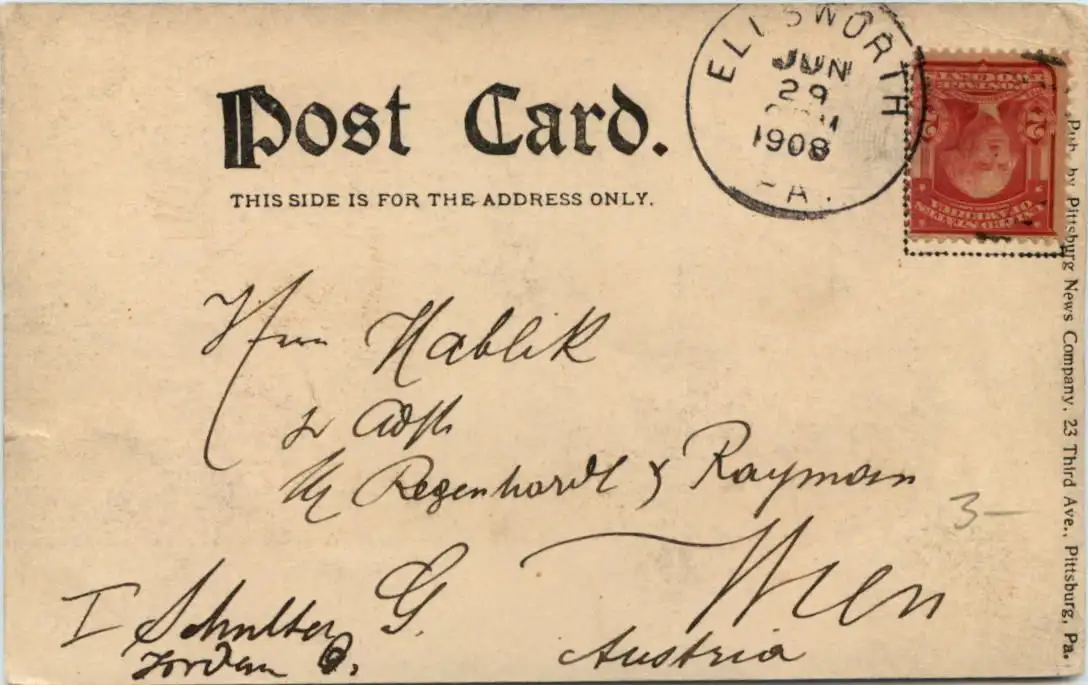 Post Card.
THIS SIDE IS FOR THE ADDRESS ONLY.
ELLSWORTH
JUN
29
1908
PA.
2 2
Pub. by Pittsburg News Company, 23 Third Ave., Pittsburg, Pa.
Herrn Hablik
Regenhardt & Raymann
3-
Wien
I
G.
Austria